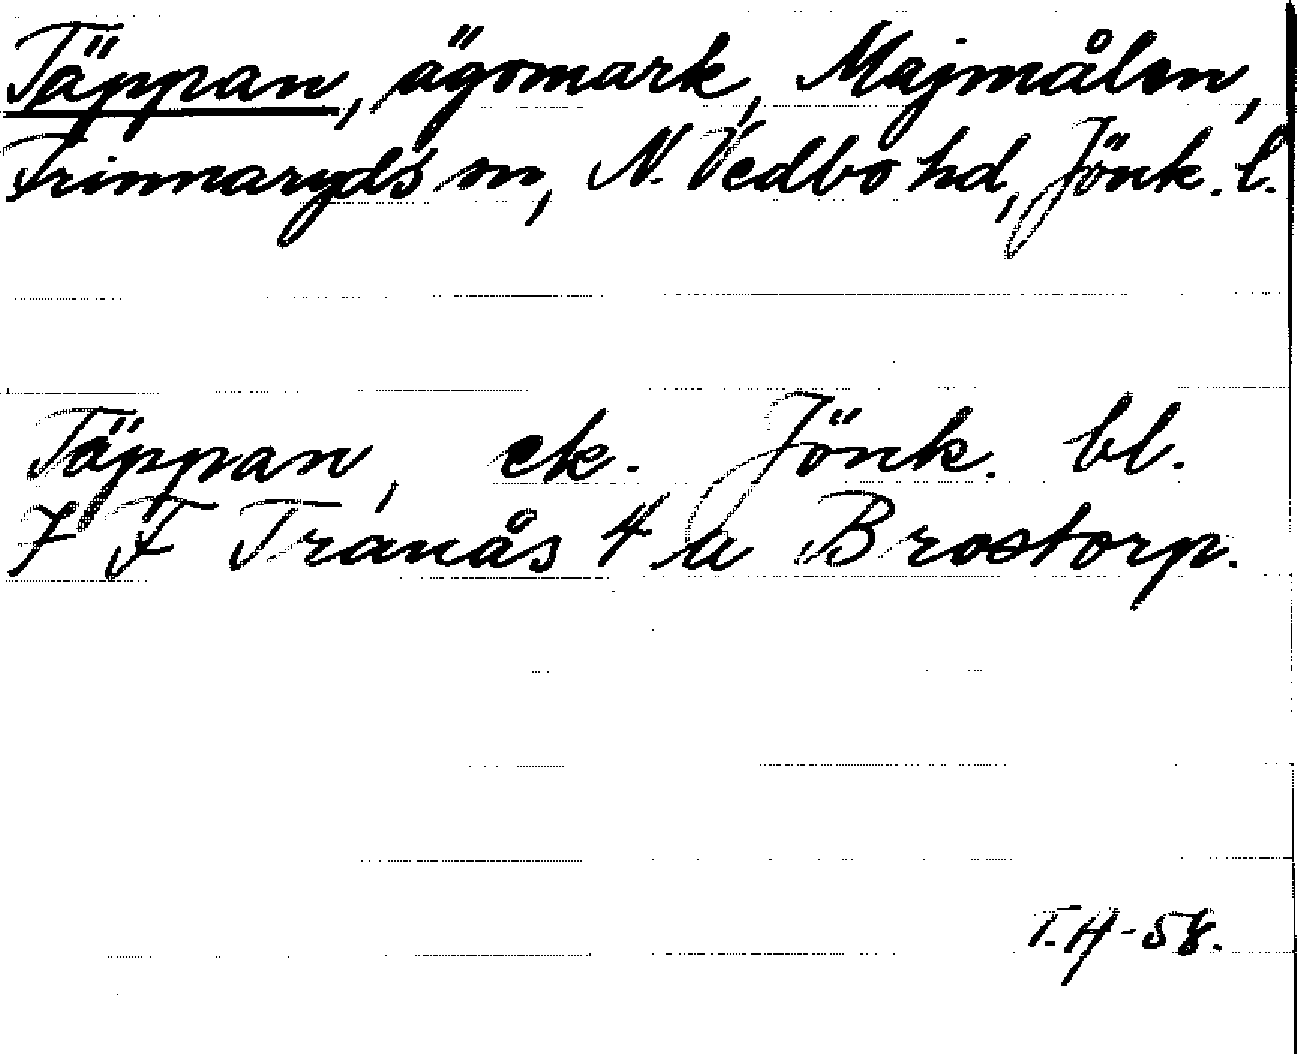 Täppan, ägomark, Majmålen,
Frinnaryds sn, N. Vedbo hd, Jönk. l.
Täppan, ek. Jönk. bl.
7 F Tranås 4 a Brostorp.
T.H-58.